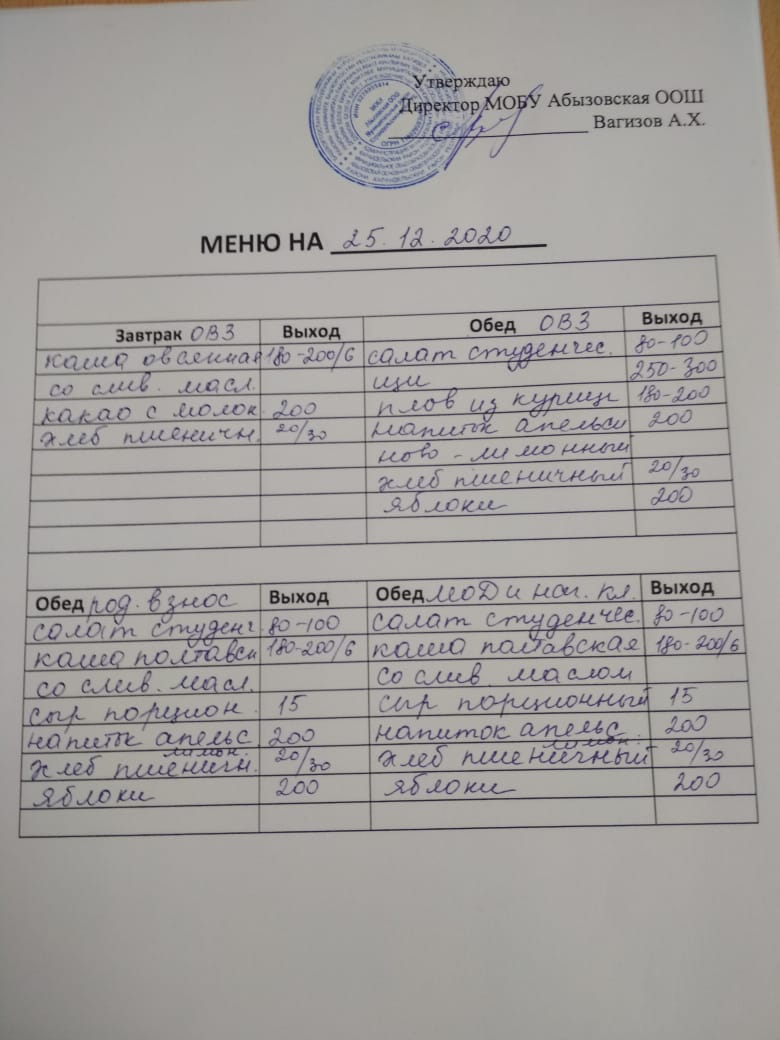 Утверждаю
Директор МОБУ Абызовская ООШ
Вагизов А.Х.
МЕНЮ НА 25.12.2020
Завтрак ОВЗ Выход Обед ОВЗ Выход
каша овсянная 180-200/6 салат студенчес. 80-100
со слив. масл. щи 250-300
какао с молок. 200 плов из курицы 180-200
хлеб пшеничн. 20/30 напиток апельси 200
ново-лимонный
хлеб пшеничный 20/30
яблоки 200
Обед род. взнос Выход Обед МОД и нач. кл. Выход
салат студенч. 80-100 салат студенчес. 80-100
каша полтавск 180-200/6 каша полтавская 180-200/6
со слив. масл. со слив. маслом
сыр порцион. 15 сыр порционный 15
напиток апельс. лимон. 200 напиток апельс. лимон. 200
хлеб пшеничн. 20/30 хлеб пшеничный 20/30
яблоки 200 яблоки 200